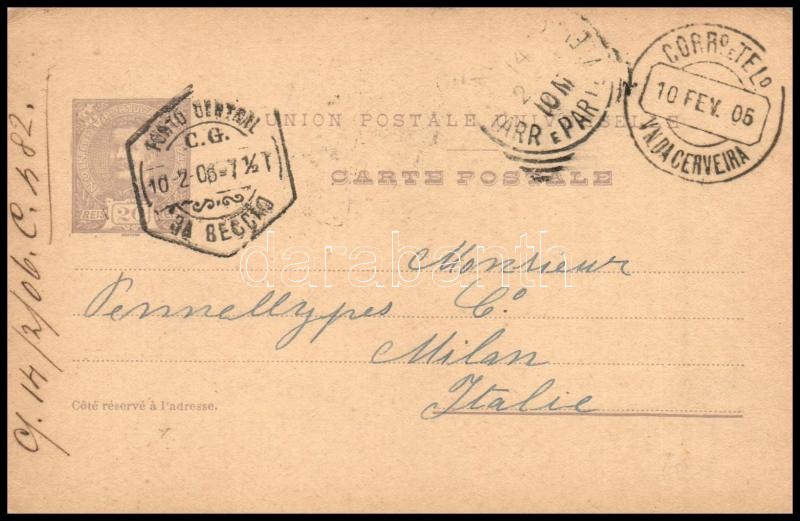 C/. 14/2/06. C. 582.
REIS 20
PORTO CENTRAL
C.G.
10-2-06-7½T
3A SECCÃO
14
2
10 M
ARR E PART
CORRO. E TELO.
10 FEV. 06
VA. N. DA CERVEIRA
UNION POSTALE UNIVERSELLE
CARTE POSTALE
darabanth
Monsieur
Pennellypes Co.
Milan
Italie
Côté réservé à l'adresse.